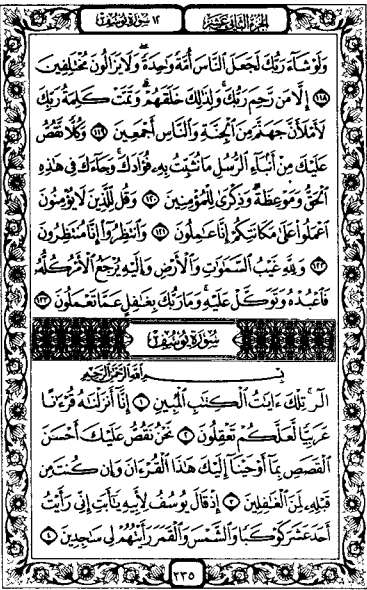 الجزء الثاني عشر
١٢ سورة يوسف
وَلَوْ شَآءَ رَبُّكَ لَجَعَلَ ٱلنَّاسَ أُمَّةً وَٰحِدَةً ۖ وَلَا يَزَالُونَ مُخْتَلِفِينَ
١١٨ إِلَّا مَن رَّحِمَ رَبُّكَ ۚ وَلِذَٰلِكَ خَلَقَهُمْ ۗ وَتَمَّتْ كَلِمَةُ رَبِّكَ
لَأَمْلَأَنَّ جَهَنَّمَ مِنَ ٱلْجِنَّةِ وَٱلنَّاسِ أَجْمَعِينَ ١١٩ وَكُلًّا نَّقُصُّ
عَلَيْكَ مِنْ أَنۢبَآءِ ٱلرُّسُلِ مَا نُثَبِّتُ بِهِۦ فُؤَادَكَ ۚ وَجَآءَكَ فِى هَٰذِهِ
ٱلْحَقُّ وَمَوْعِظَةٌ وَذِكْرَىٰ لِلْمُؤْمِنِينَ ١٢٠ وَقُل لِّلَّذِينَ لَا يُؤْمِنُونَ
ٱعْمَلُوا۟ عَلَىٰ مَكَانَتِكُمْ إِنَّا عَٰمِلُونَ ١٢١ وَٱنتَظِرُوٓا۟ إِنَّا مُنتَظِرُونَ
١٢٢ وَلِلَّهِ غَيْبُ ٱلسَّمَٰوَٰتِ وَٱلْأَرْضِ وَإِلَيْهِ يُرْجَعُ ٱلْأَمْرُ كُلُّهُۥ
فَٱعْبُدْهُ وَتَوَكَّلْ عَلَيْهِ ۚ وَمَا رَبُّكَ بِغَٰفِلٍ عَمَّا تَعْمَلُونَ ١٢٣
سورة يوسف
بِسْمِ ٱللَّهِ ٱلرَّحْمَٰنِ ٱلرَّحِيمِ
الٓر ۚ تِلْكَ ءَايَٰتُ ٱلْكِتَٰبِ ٱلْمُبِينِ ١ إِنَّآ أَنزَلْنَٰهُ قُرْءَٰنًا
عَرَبِيًّا لَّعَلَّكُمْ تَعْقِلُونَ ٢ نَحْنُ نَقُصُّ عَلَيْكَ أَحْسَنَ
ٱلْقَصَصِ بِمَآ أَوْحَيْنَآ إِلَيْكَ هَٰذَا ٱلْقُرْءَانَ وَإِن كُنتَ مِن
قَبْلِهِۦ لَمِنَ ٱلْغَٰفِلِينَ ٣ إِذْ قَالَ يُوسُفُ لِأَبِيهِ يَٰٓأَبَتِ إِنِّى رَأَيْتُ
أَحَدَ عَشَرَ كَوْكَبًا وَٱلشَّمْسَ وَٱلْقَمَرَ رَأَيْتُهُمْ لِى سَٰجِدِينَ ٤
٢٣٥